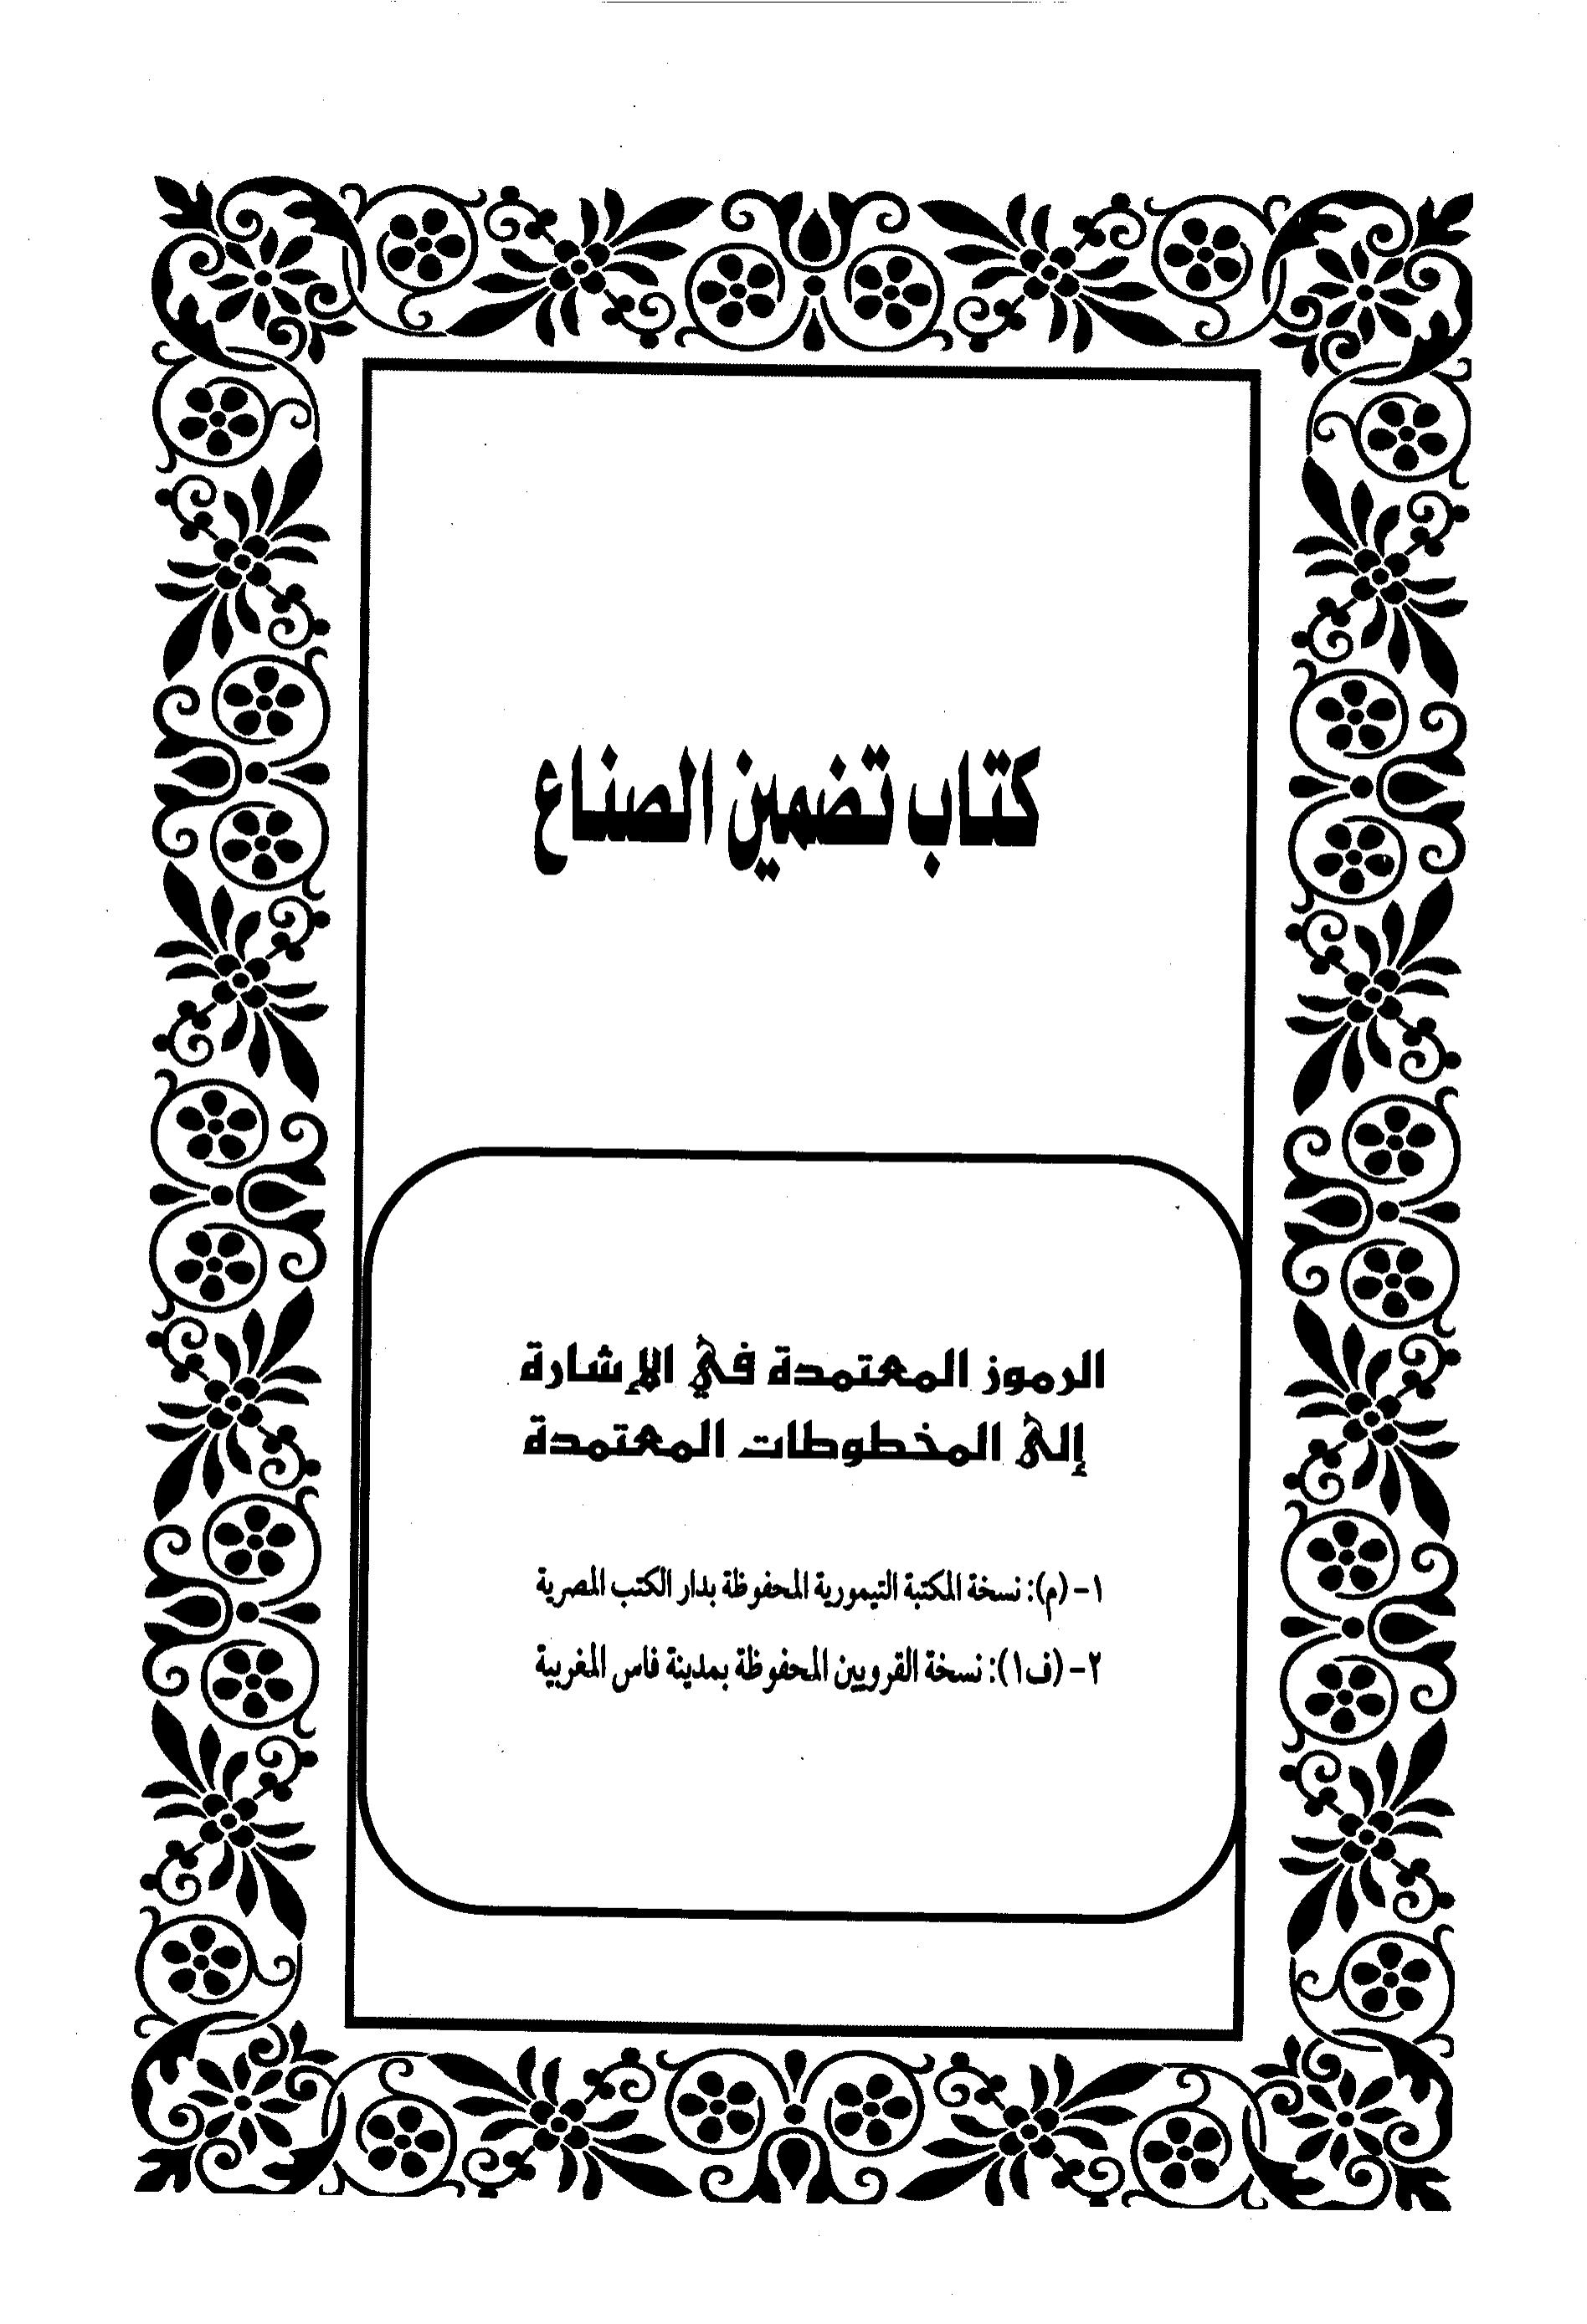 كتاب تضمين الصناع
الرموز المعتمدة في الإشارة
إلى المخطوطات المعتمدة
١- (م): نسخة المكتبة التيمورية المحفوظة بدار الكتب المصرية
٢- (ف١): نسخة القرويين المحفوظة بمدينة فاس المغربية